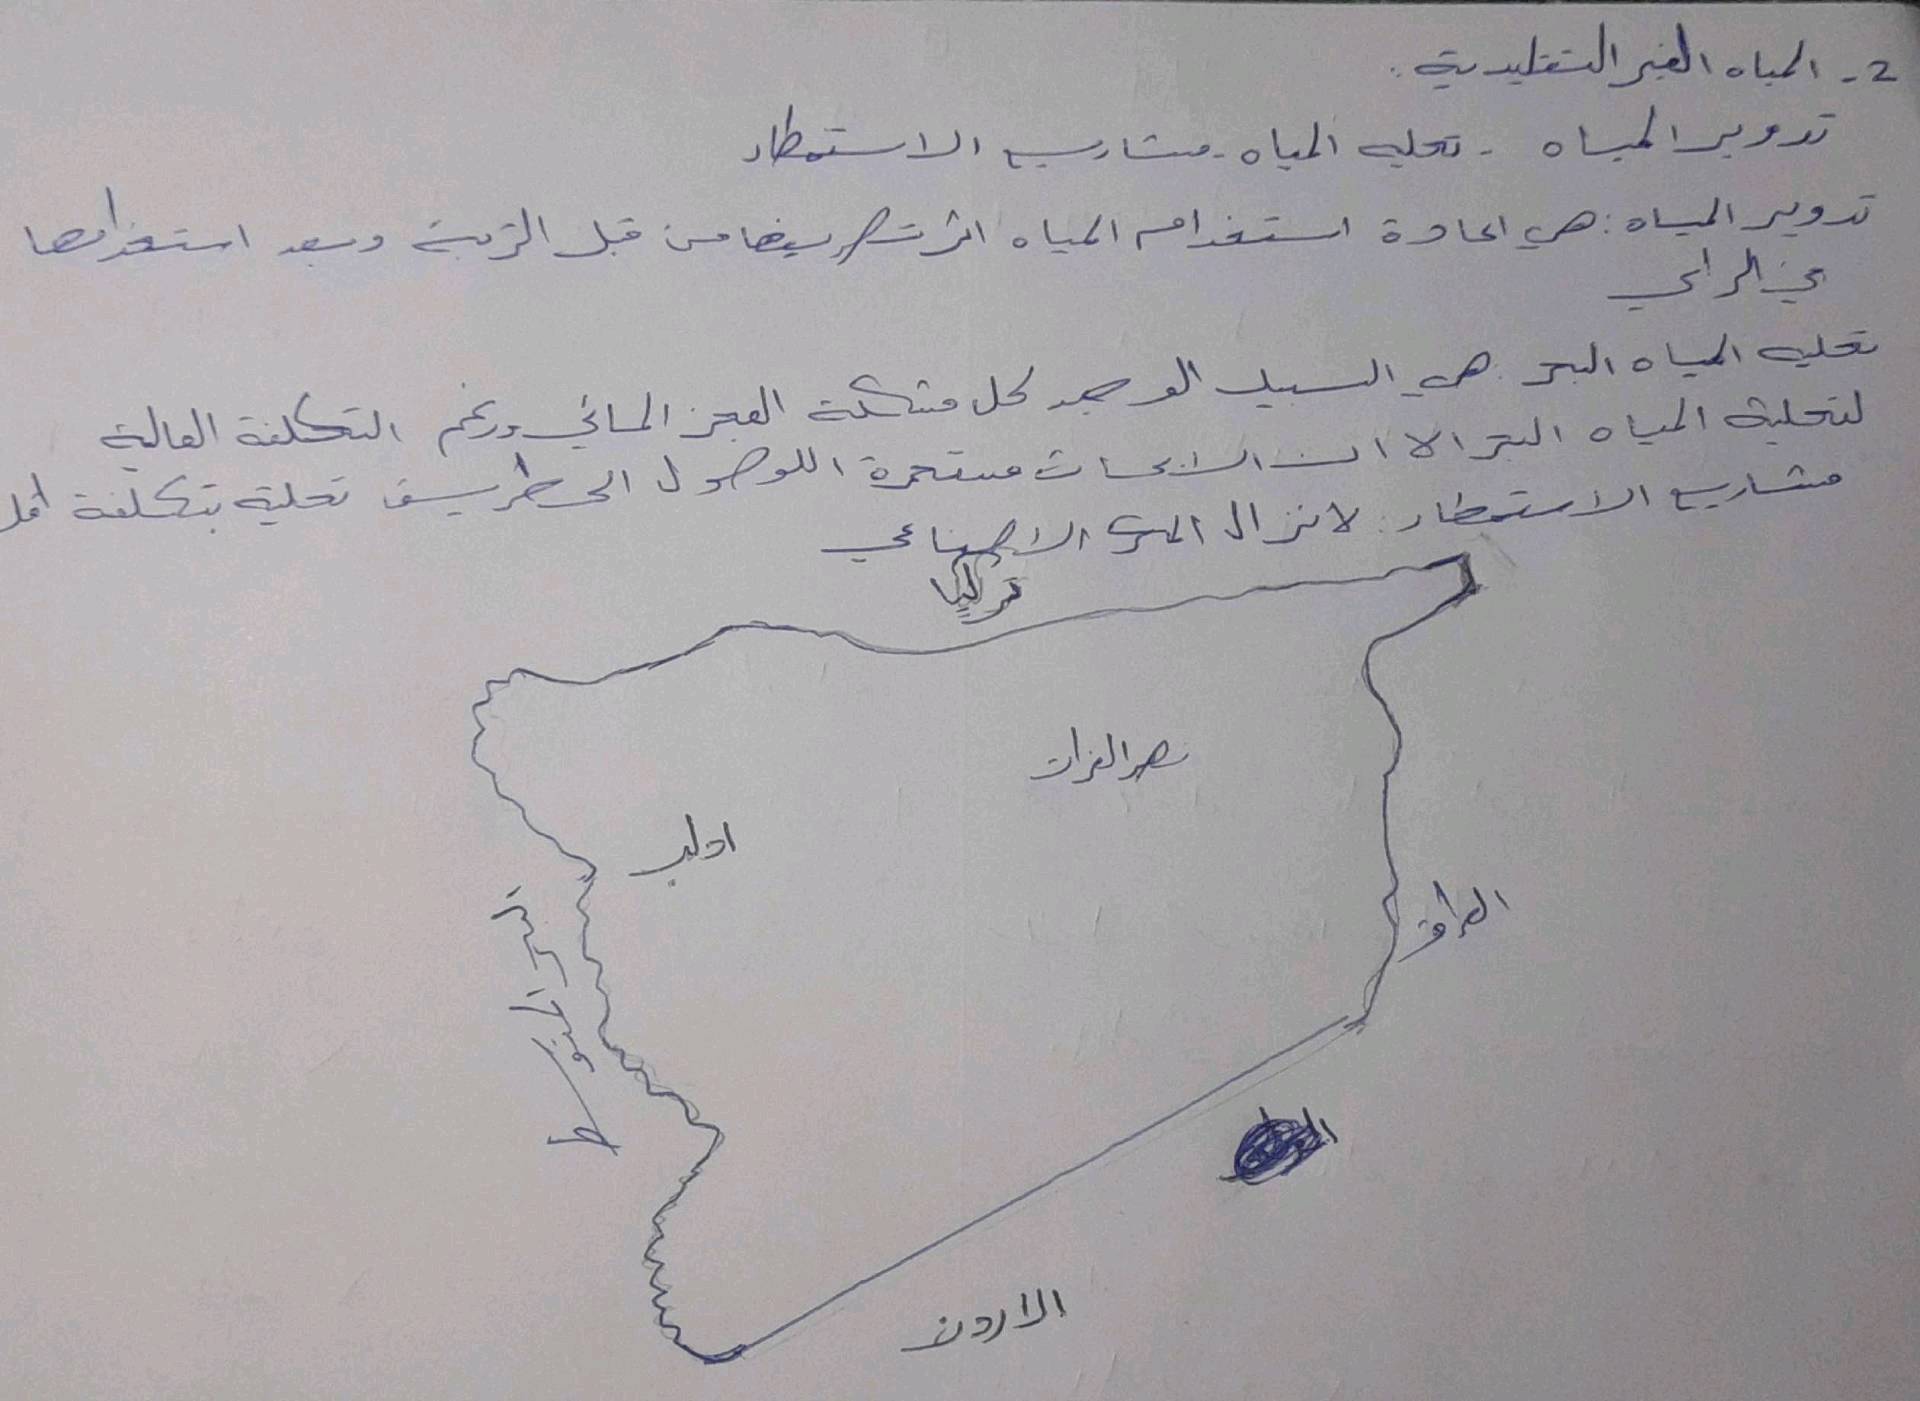 2 - المياه الغير التقليدية :
تدوير المياه - تحليه المياه - مشاريع الاستمطار
تدوير المياه : هي اعادة استخدام المياه من قبل التربة وبعد استخدامها
في الراي
تحليه المياه البحر هي السبيل الوحيد لحل مشكلة العجز المائي ورغم التكلفة العالية
لتحلية المياه البحر الا ان الابحاث مستمرة اللوصول الى طريق تحلية بتكلفة اقل
مشاريع الاستمطار : لانزال الاصناعي
تركيا
نهر الفرات
ادلب
العراق
المتوسط
الاردن